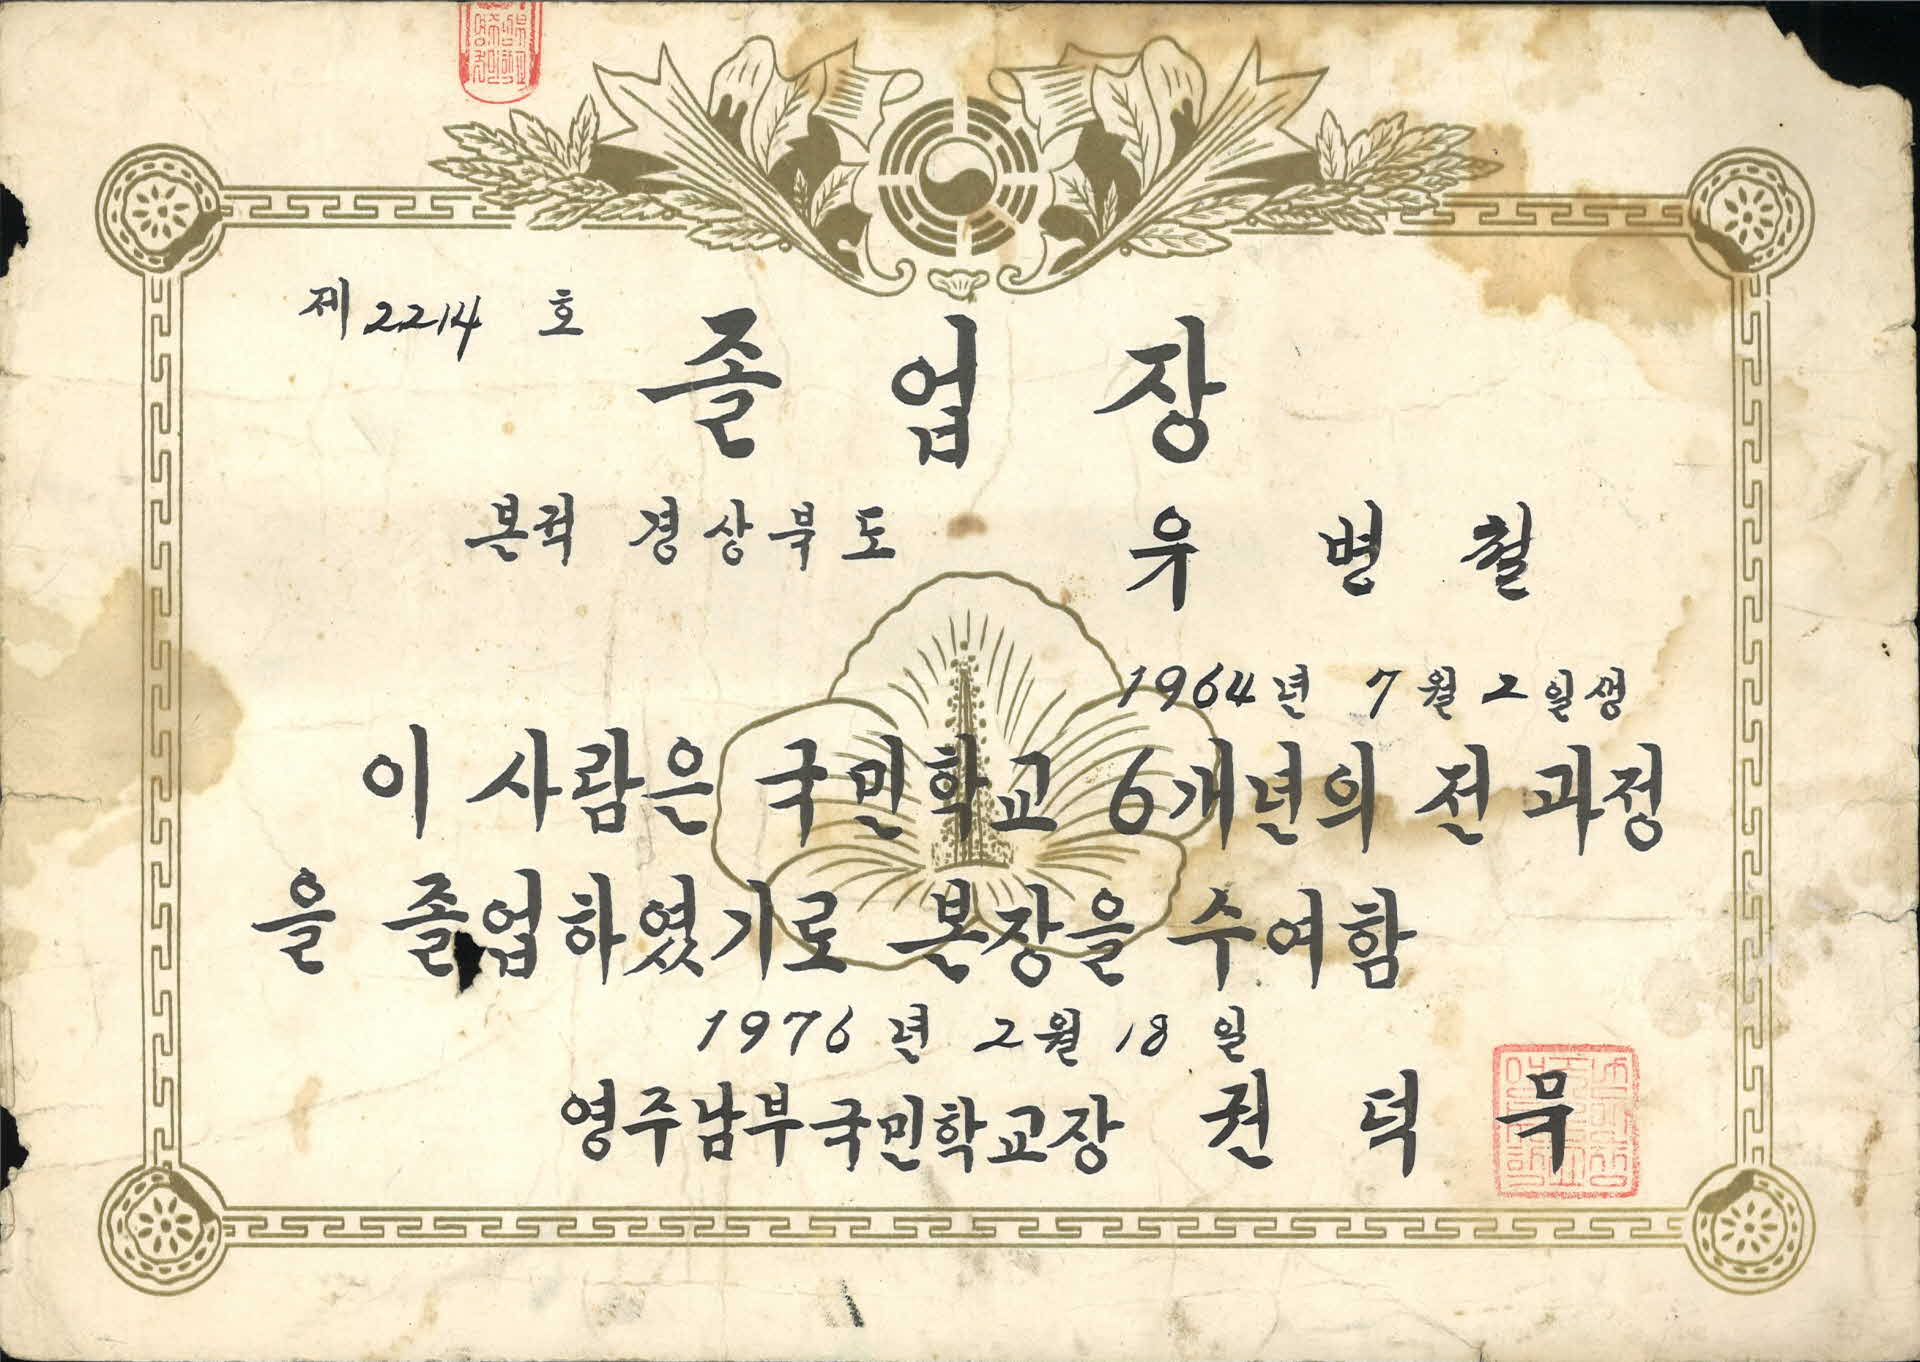 제 2214 호
졸업장
본적 경상북도 우병철
1964년 7월 2일생
이 사람은 국민학교 6개년의 전 과정
을 졸업하였기로 본장을 수여함
1976년 2월 18일
영주남부국민학교장 권덕묵